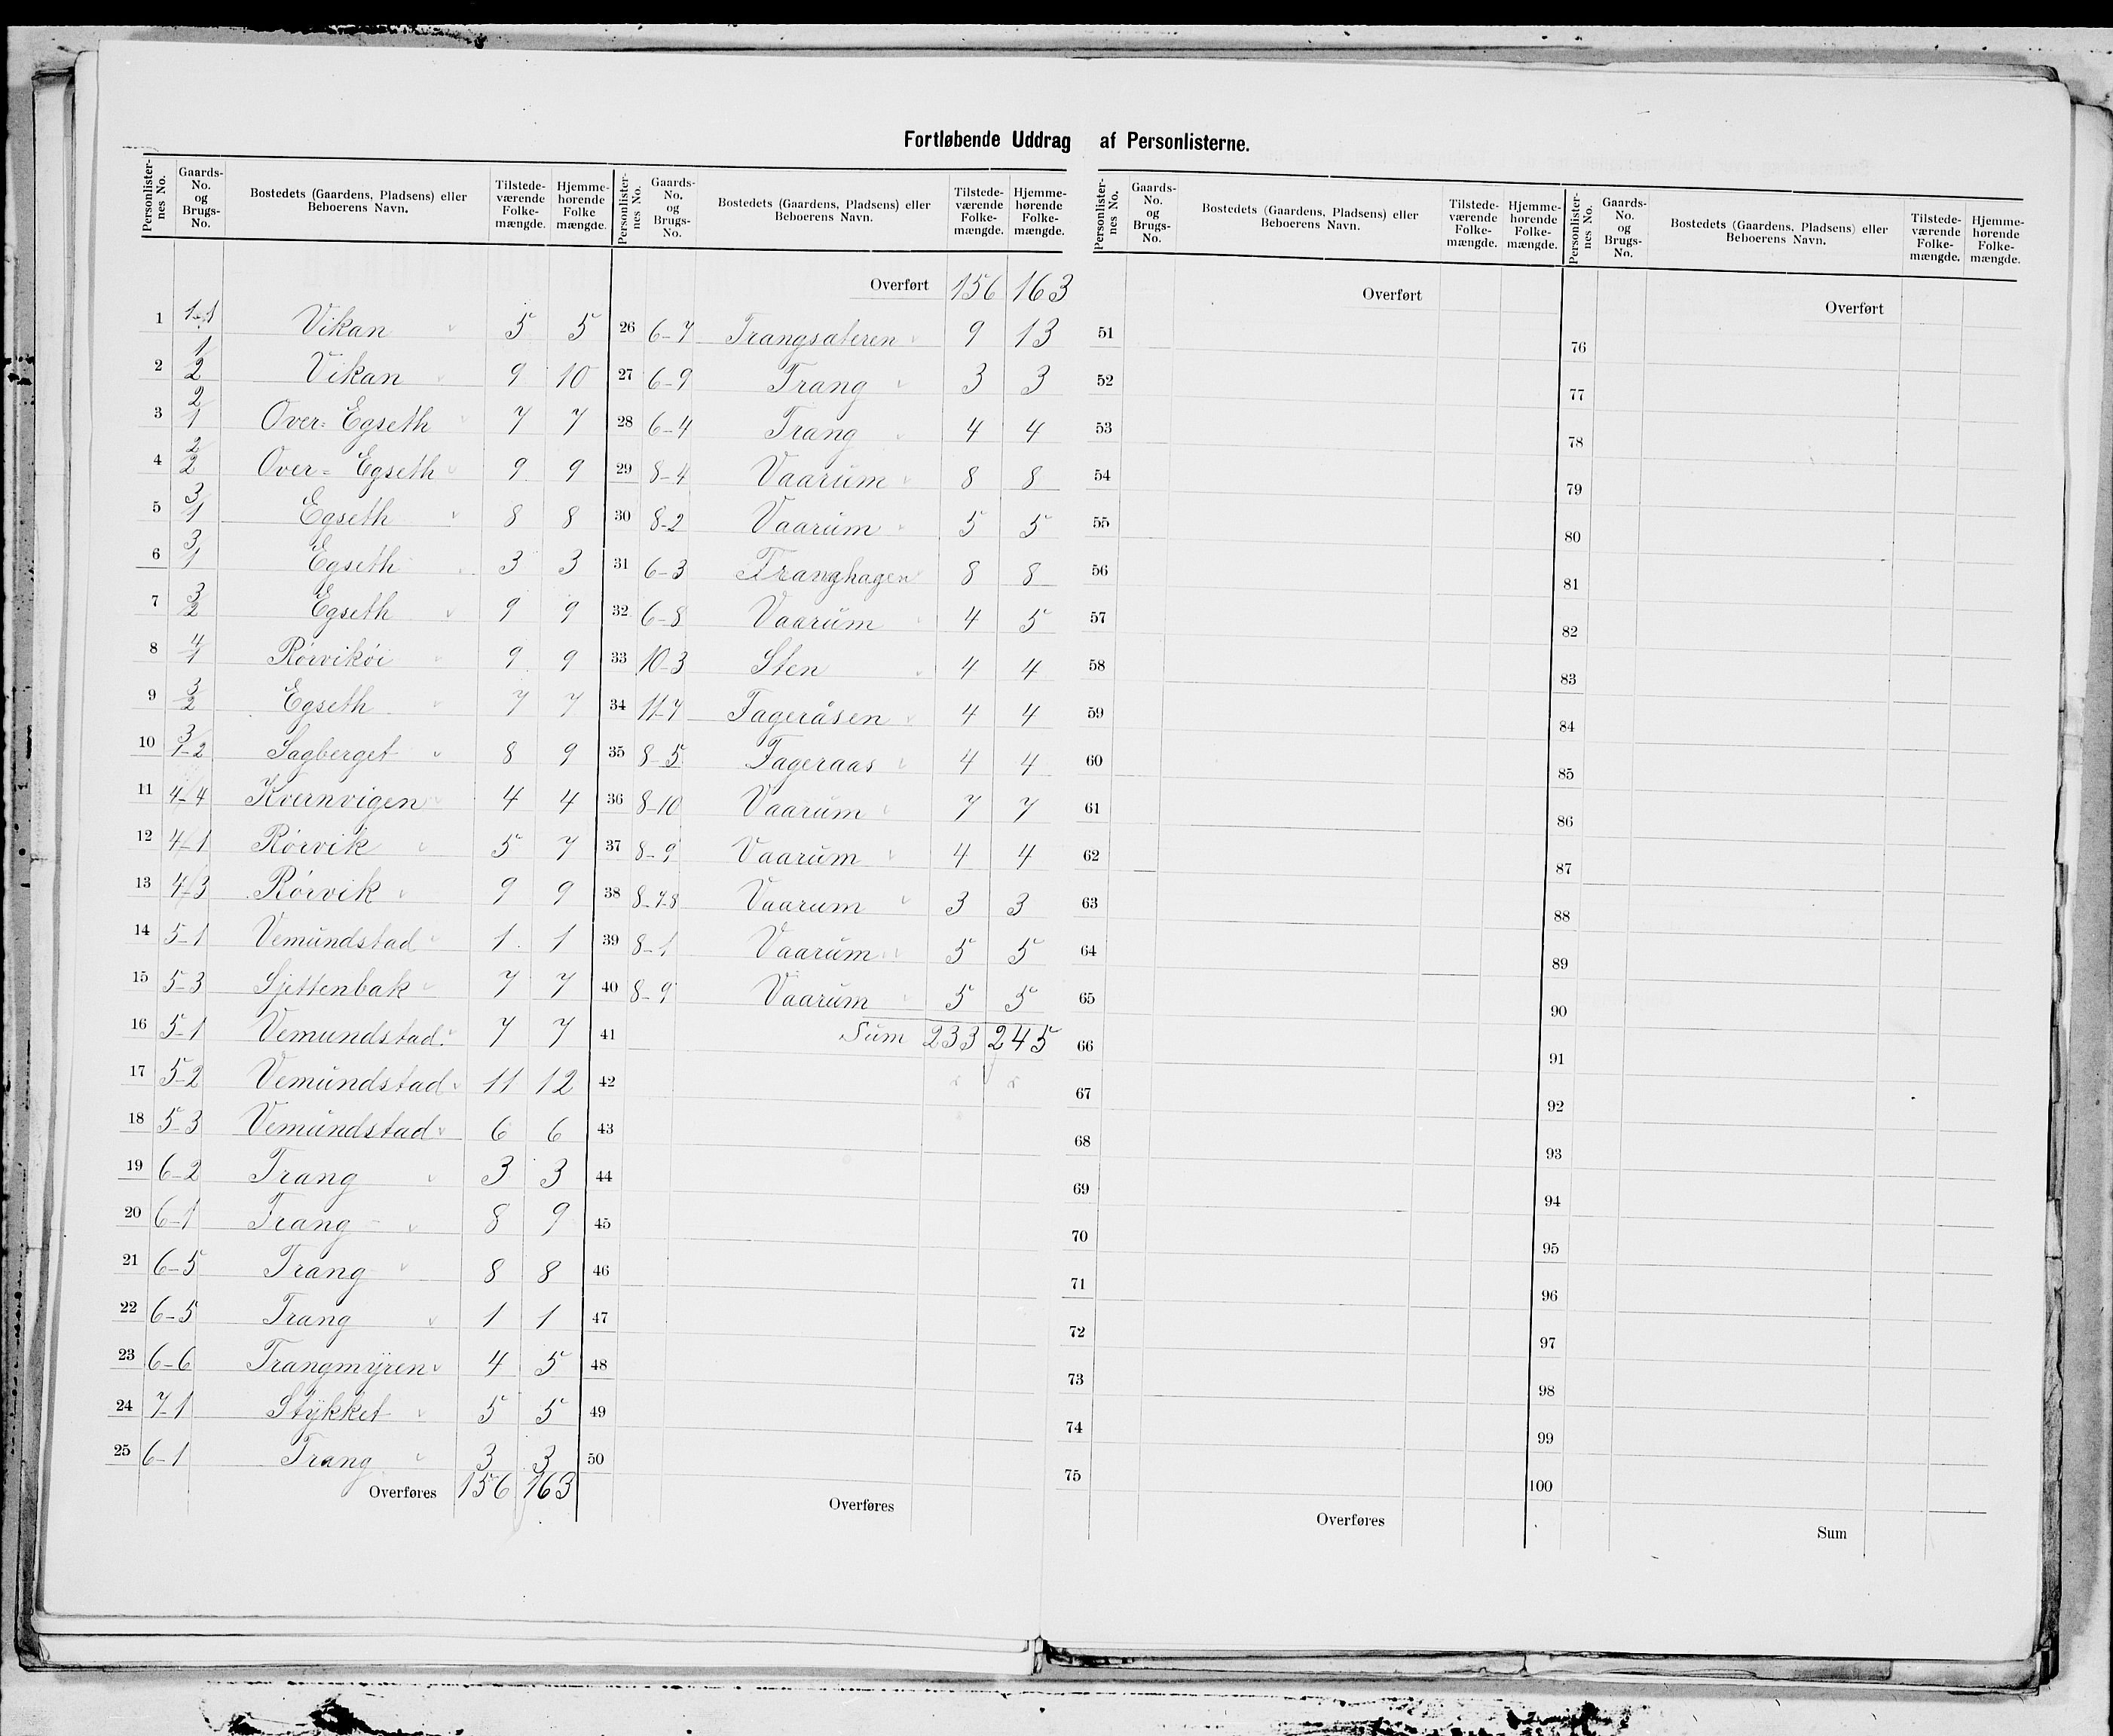 Fortløbende Uddrag af Personlisterne.
Personlister-nes No. Gaards-No. og Brugs-No. Bostedets (Gaardens, Pladsens) eller Beboerens Navn. Tilstede-værende Folke-mængde. Hjemme-hørende Folke mængde.
1 1-1 Vikan 5 5
2 1/2 Vikan 9 10
3 2/1 Over-Egseth 7 7
4 2/2 Over-Egseth 9 9
5 3/1 Egseth 8 8
6 3/1 Egseth 3 3
7 3/2 Egseth 9 9
8 4/1 Rörviköi 9 9
9 3/2 Egseth 7 7
10 3/1-2 Sagberget 8 9
11 4-4 Kvernvigen 4 4
12 4-1 Rörvik 5 7
13 4-3 Rörvik 9 9
14 5-1 Vemundstad 1 1
15 5-3 Sjettenbak 7 7
16 5-1 Vemundstad 7 7
17 5-2 Vemundstad 11 12
18 5-3 Vemundstad 6 6
19 6-2 Trang 3 3
20 6-1 Trang 8 9
21 6-5 Trang 8 8
22 6-5 Trang 1 1
23 6-6 Trangmyren 4 5
24 7-1 Stykket 5 5
25 6-1 Trang 3 3
Overføres 156 163
Personlister-nes No. Gaards-No. og Brugs-No. Bostedets (Gaardens, Pladsens) eller Beboerens Navn. Tilstede-værende Folke-mængde. Hjemme-hørende Folke-mængde.
Overført 156 163
26 6-7 Trangsæteren 9 13
27 6-9 Trang 3 3
28 6-4 Trang 4 4
29 8-4 Vaarum 8 8
30 8-2 Vaarum 5 5
31 6-3 Tranghagen 8 8
32 6-8 Vaarum 4 5
33 10-3 Sten 4 4
34 11-7 Fageråsen 4 4
35 8-5 Fageraas 4 4
36 8-10 Vaarum 7 7
37 8-9 Vaarum 4 4
38 8-7-8 Vaarum 3 3
39 8-1 Vaarum 5 5
40 8-9 Vaarum 5 5
41 Sum 233 245
42
43
44
45
46
47
48
49
50
Overføres
Personlister-nes No. Gaards-No. og Brugs-No. Bostedets (Gaardens, Pladsens) eller Beboerens Navn. Tilstede-værende Folke-mængde. Hjemme-hørende Folke-mængde.
Overført
51
52
53
54
55
56
57
58
59
60
61
62
63
64
65
66
67
68
69
70
71
72
73
74
75
Overføres
Personlister-nes No. Gaards-No. og Brugs-No. Bostedets (Gaardens, Pladsens) eller Beboerens Navn. Tilstede-værende Folke-mængde. Hjemme-hørende Folke-mængde.
Overført
76
77
78
79
80
81
82
83
84
85
86
87
88
89
90
91
92
93
94
95
96
97
98
99
100
Sum